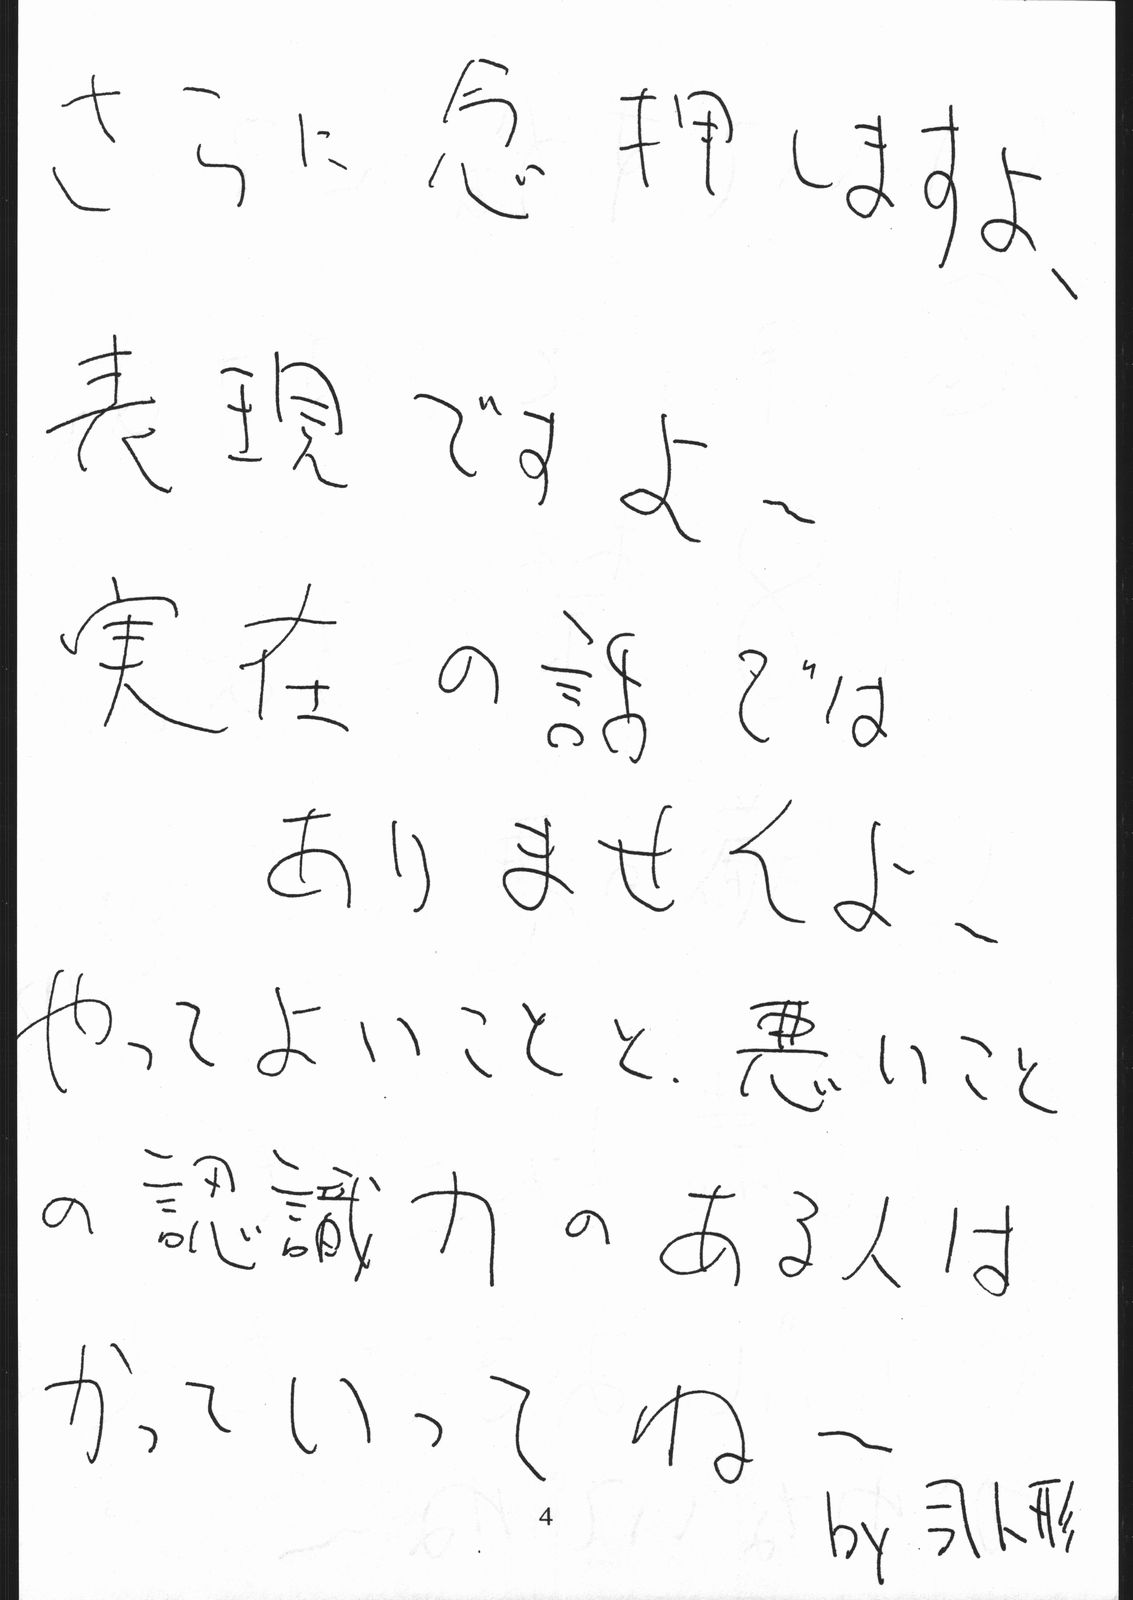 さらに念押しますよ、
表現ですよ〜
実在の話では
ありませんよ〜
やってよいことと、悪いこと
の認識力のある人は
かっていってね〜
4
by 弓人形